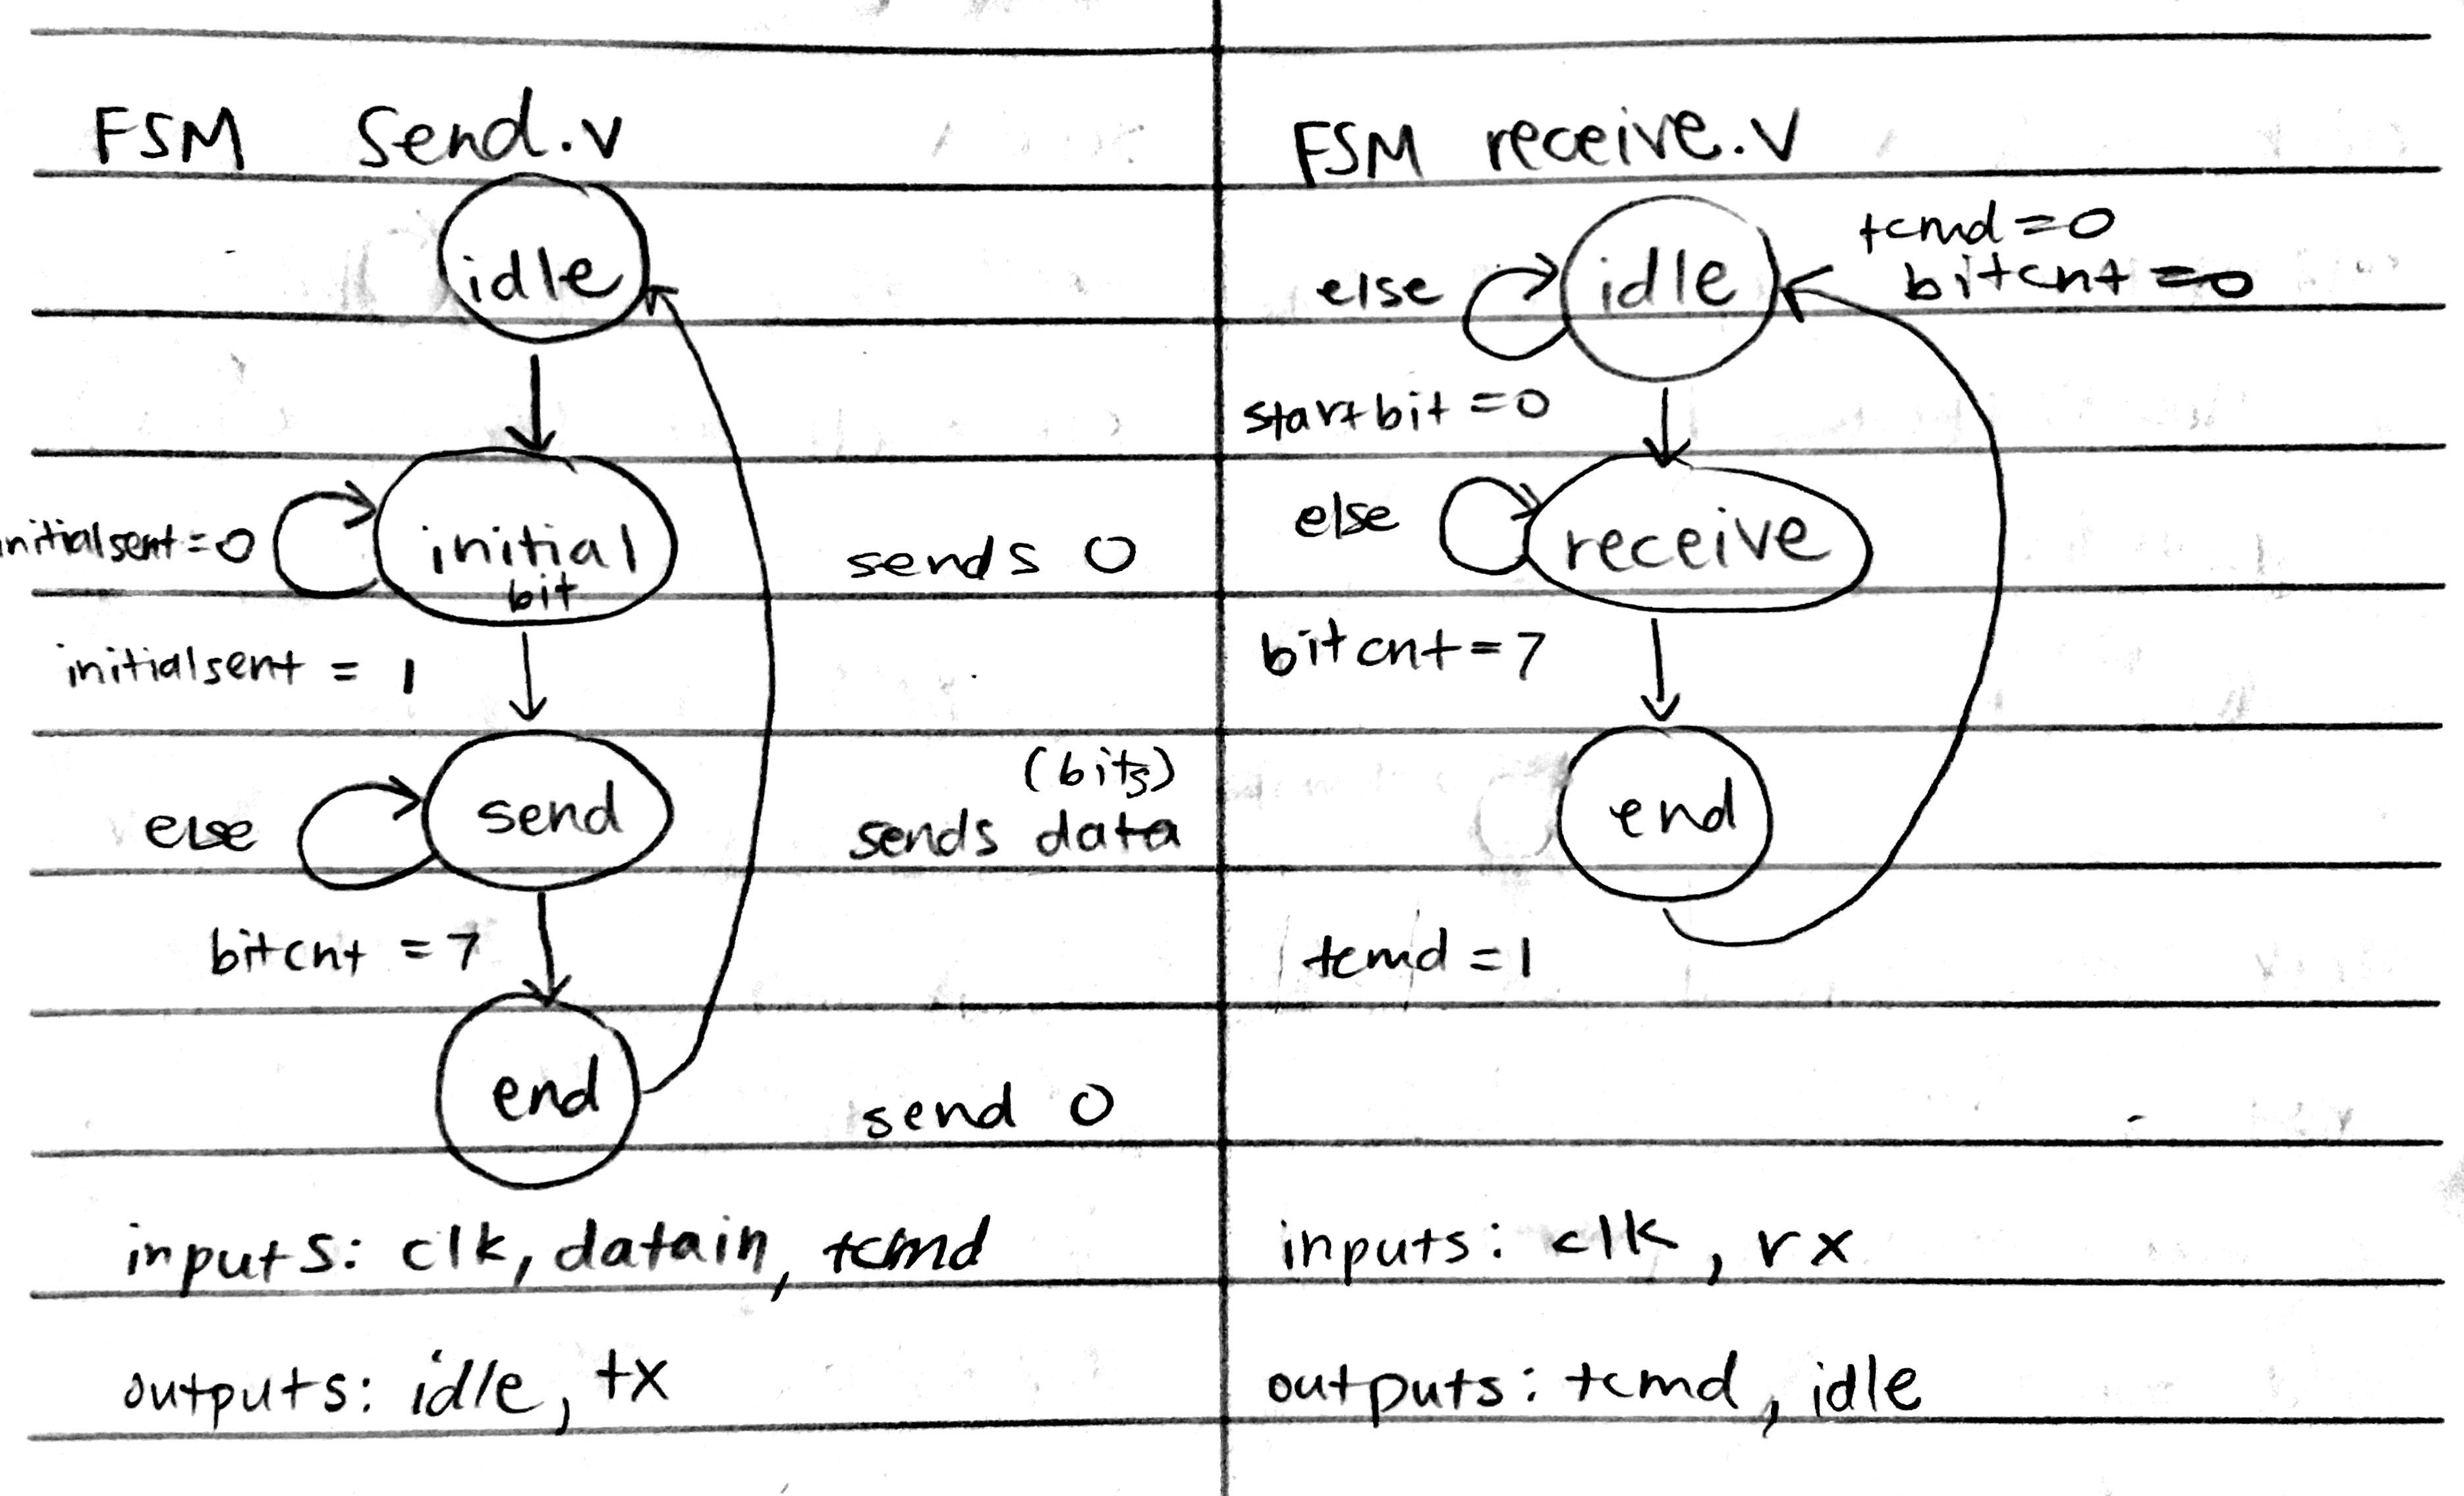 FSM send.v
idle
initialsent=0
initial
bit
sends 0
initialsent = 1
else
send
(bits)
sends data
bitcnt = 7
end
send 0
inputs: clk, datain, tcmd
outputs: idle, tx
FSM receive.v
tcmd=0
bitcnt=0
else
idle
startbit=0
else
receive
bitcnt=7
end
tcmd=1
inputs: clk, rx
outputs: tcmd, idle